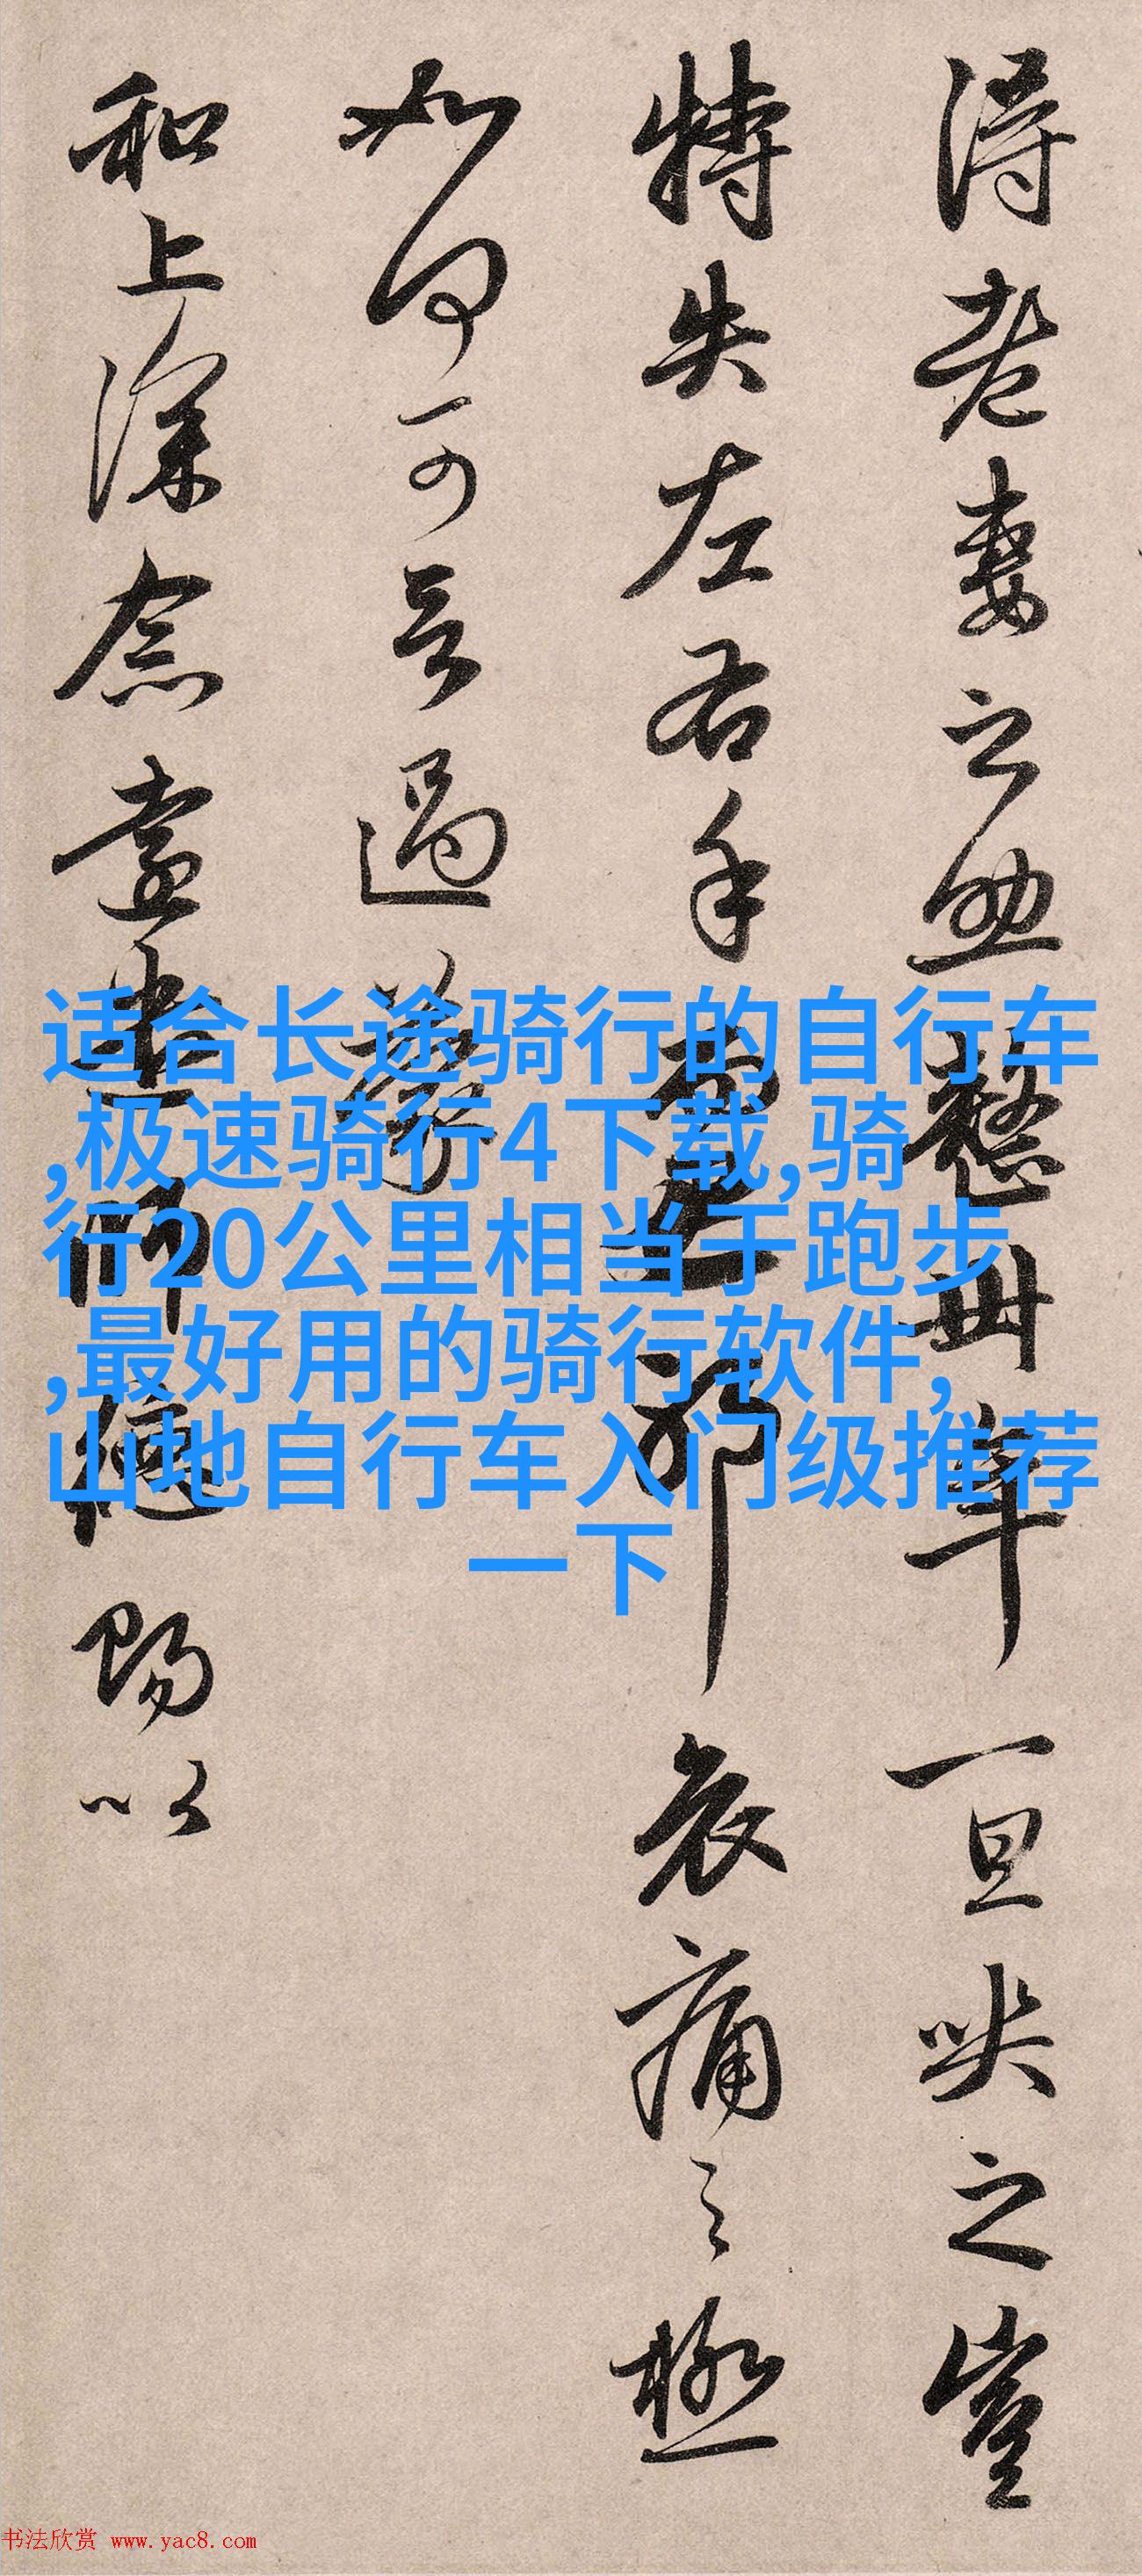 得老妻之助整卅年一旦哭之豈
特失左右手而已耶哀痛之極
如何可言過蒙
和上深念遠遣師德賜以
适合长途骑行的自行车
,极速骑行4下载,骑
行20公里相当于跑步
,最好用的骑行软件,
山地自行车入门级推荐
一下
书法欣赏 www.yac8.com